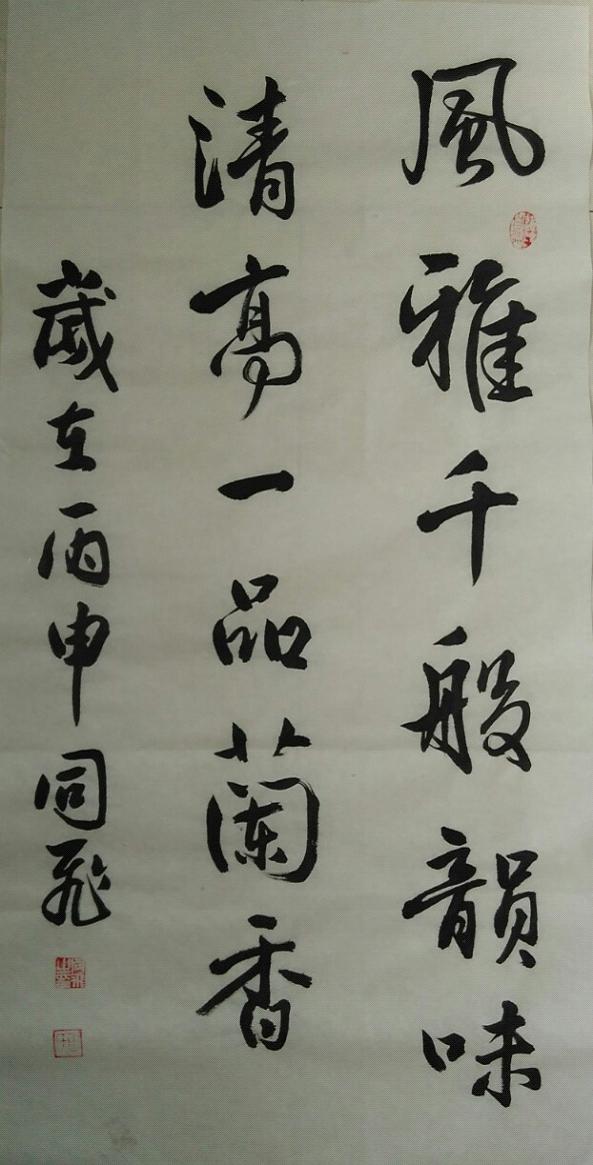 風雅千般韻味
清高一品蘭香
歲在丙申同飛